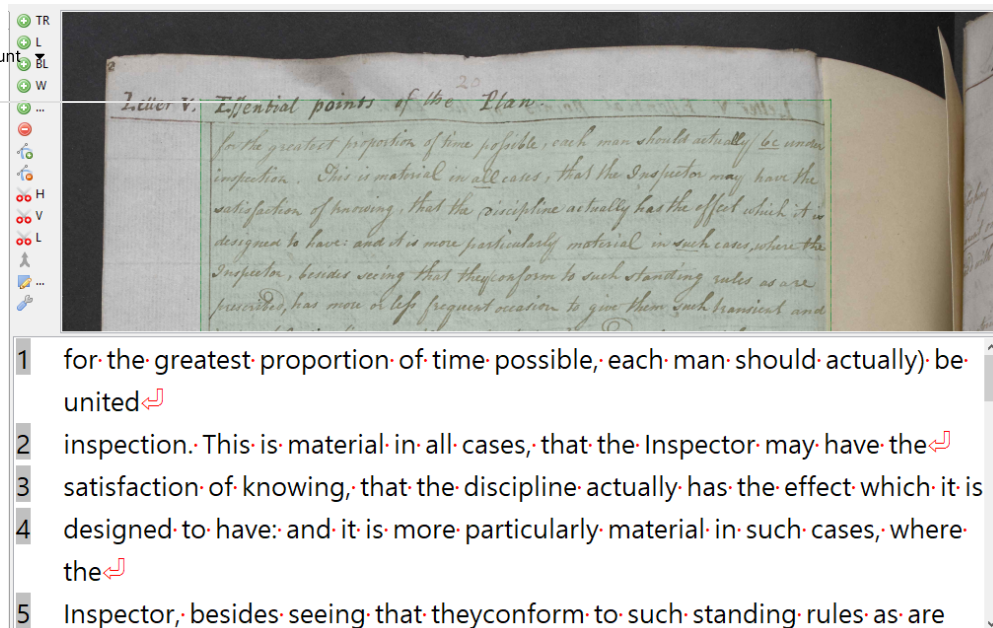 TR
L
unt
BL
W
...
H
V
L
...
2
20
Letter V. Essential points of the Plan.
for the greatest proportion of time possible, each man should actually) be under
inspection. This is material in all cases, that the Inspector may have the
satisfaction of knowing, that the discipline actually has the effect which it is
designed to have: and it is more particularly material in such cases, where the
Inspector, besides seeing that they conform to such standing rules as are
prescribed, has more or less frequent occasion to give them such transient and
1 for the greatest proportion of time possible, each man should actually) be
united
2 inspection. This is material in all cases, that the Inspector may have the
3 satisfaction of knowing, that the discipline actually has the effect which it is
4 designed to have: and it is more particularly material in such cases, where
the
5 Inspector, besides seeing that theyconform to such standing rules as are